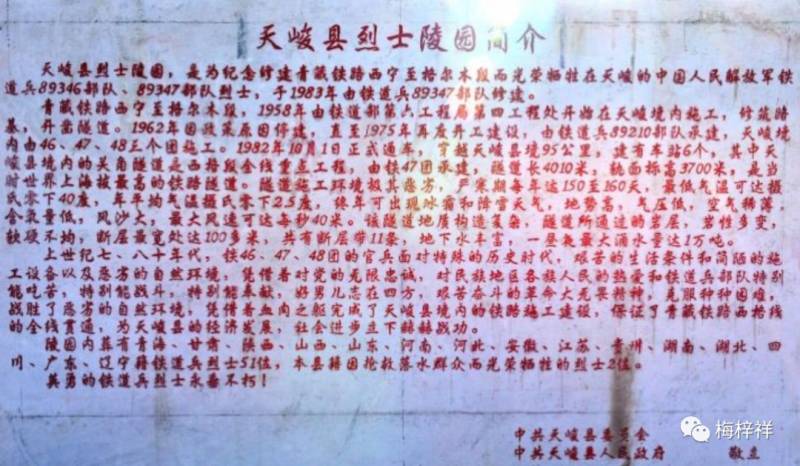 天峻县烈士陵园简介
天峻县烈士陵园，是为纪念修建青藏铁路西宁至格尔木段而光荣牺牲在天峻的中国人民解放军铁
道兵89346部队、89347部队烈士，于1983年由铁道兵89347部队修建。
青藏铁路西宁至格尔木段，1958年由铁道部第六工程局第四工程处开始在天峻境内施工，修筑路
基，开凿隧道。1962年因政策原因停建，直至1975年再度开工建设，由铁道兵89210部队承建，天峻境
内由46、47、48三个团施工。1982年10月1日正式通车，穿越天峻县境95公里，建有车站6个，其中天
峻县境内的关角隧道是西格段全线重点工程，由铁47团承建，隧道长4010米，轨面标高3700米，是当
时世界上海拔最高的铁路隧道。隧道施工环境极其恶劣，严寒期每年达150至160天，最低气温可达摄
氏零下40度，年平均气温摄氏零下2.5度，终年可出现冰霜和降雪天气，地势高，气压低，空气稀薄，
含氧量低，风沙大，最大风速可达每秒40米。该隧道地质构造复杂，隧道所通过的岩层，岩性多变，
软硬不均，断层最宽处达100多米，共有断层带11条，地下水丰富，一昼夜最大涌水量达1万吨。
上世纪七、八十年代，铁46、47、48团的官兵面对特殊的历史时代，艰苦的生活条件和简陋的施
工设备以及恶劣的自然环境，凭借着对党的无限忠诚，对民族地区各族人民的热爱和铁道兵部队特别
能吃苦，特别能战斗，特别能奉献，好男儿志在四方，艰苦奋斗的革命大无畏精神，克服种种困难，
战胜了恶劣的自然环境，凭借着血肉之躯完成了天峻县境内的铁路施工建设，保证了青藏铁路西格线
的全线贯通，为天峻县的经济发展，社会进步立下赫赫战功。
陵园内葬有青海、甘肃、陕西、山西、山东、河南、河北、安徽、江苏、贵州、湖南、湖北、四
川、广东、辽宁籍铁道兵烈士51位，本县籍因抢救落水群众而光荣牺牲的烈士2位。
英勇的铁道兵烈士永垂不朽！
中共天峻县委员会
中共天峻县人民政府 敬立
梅梓祥